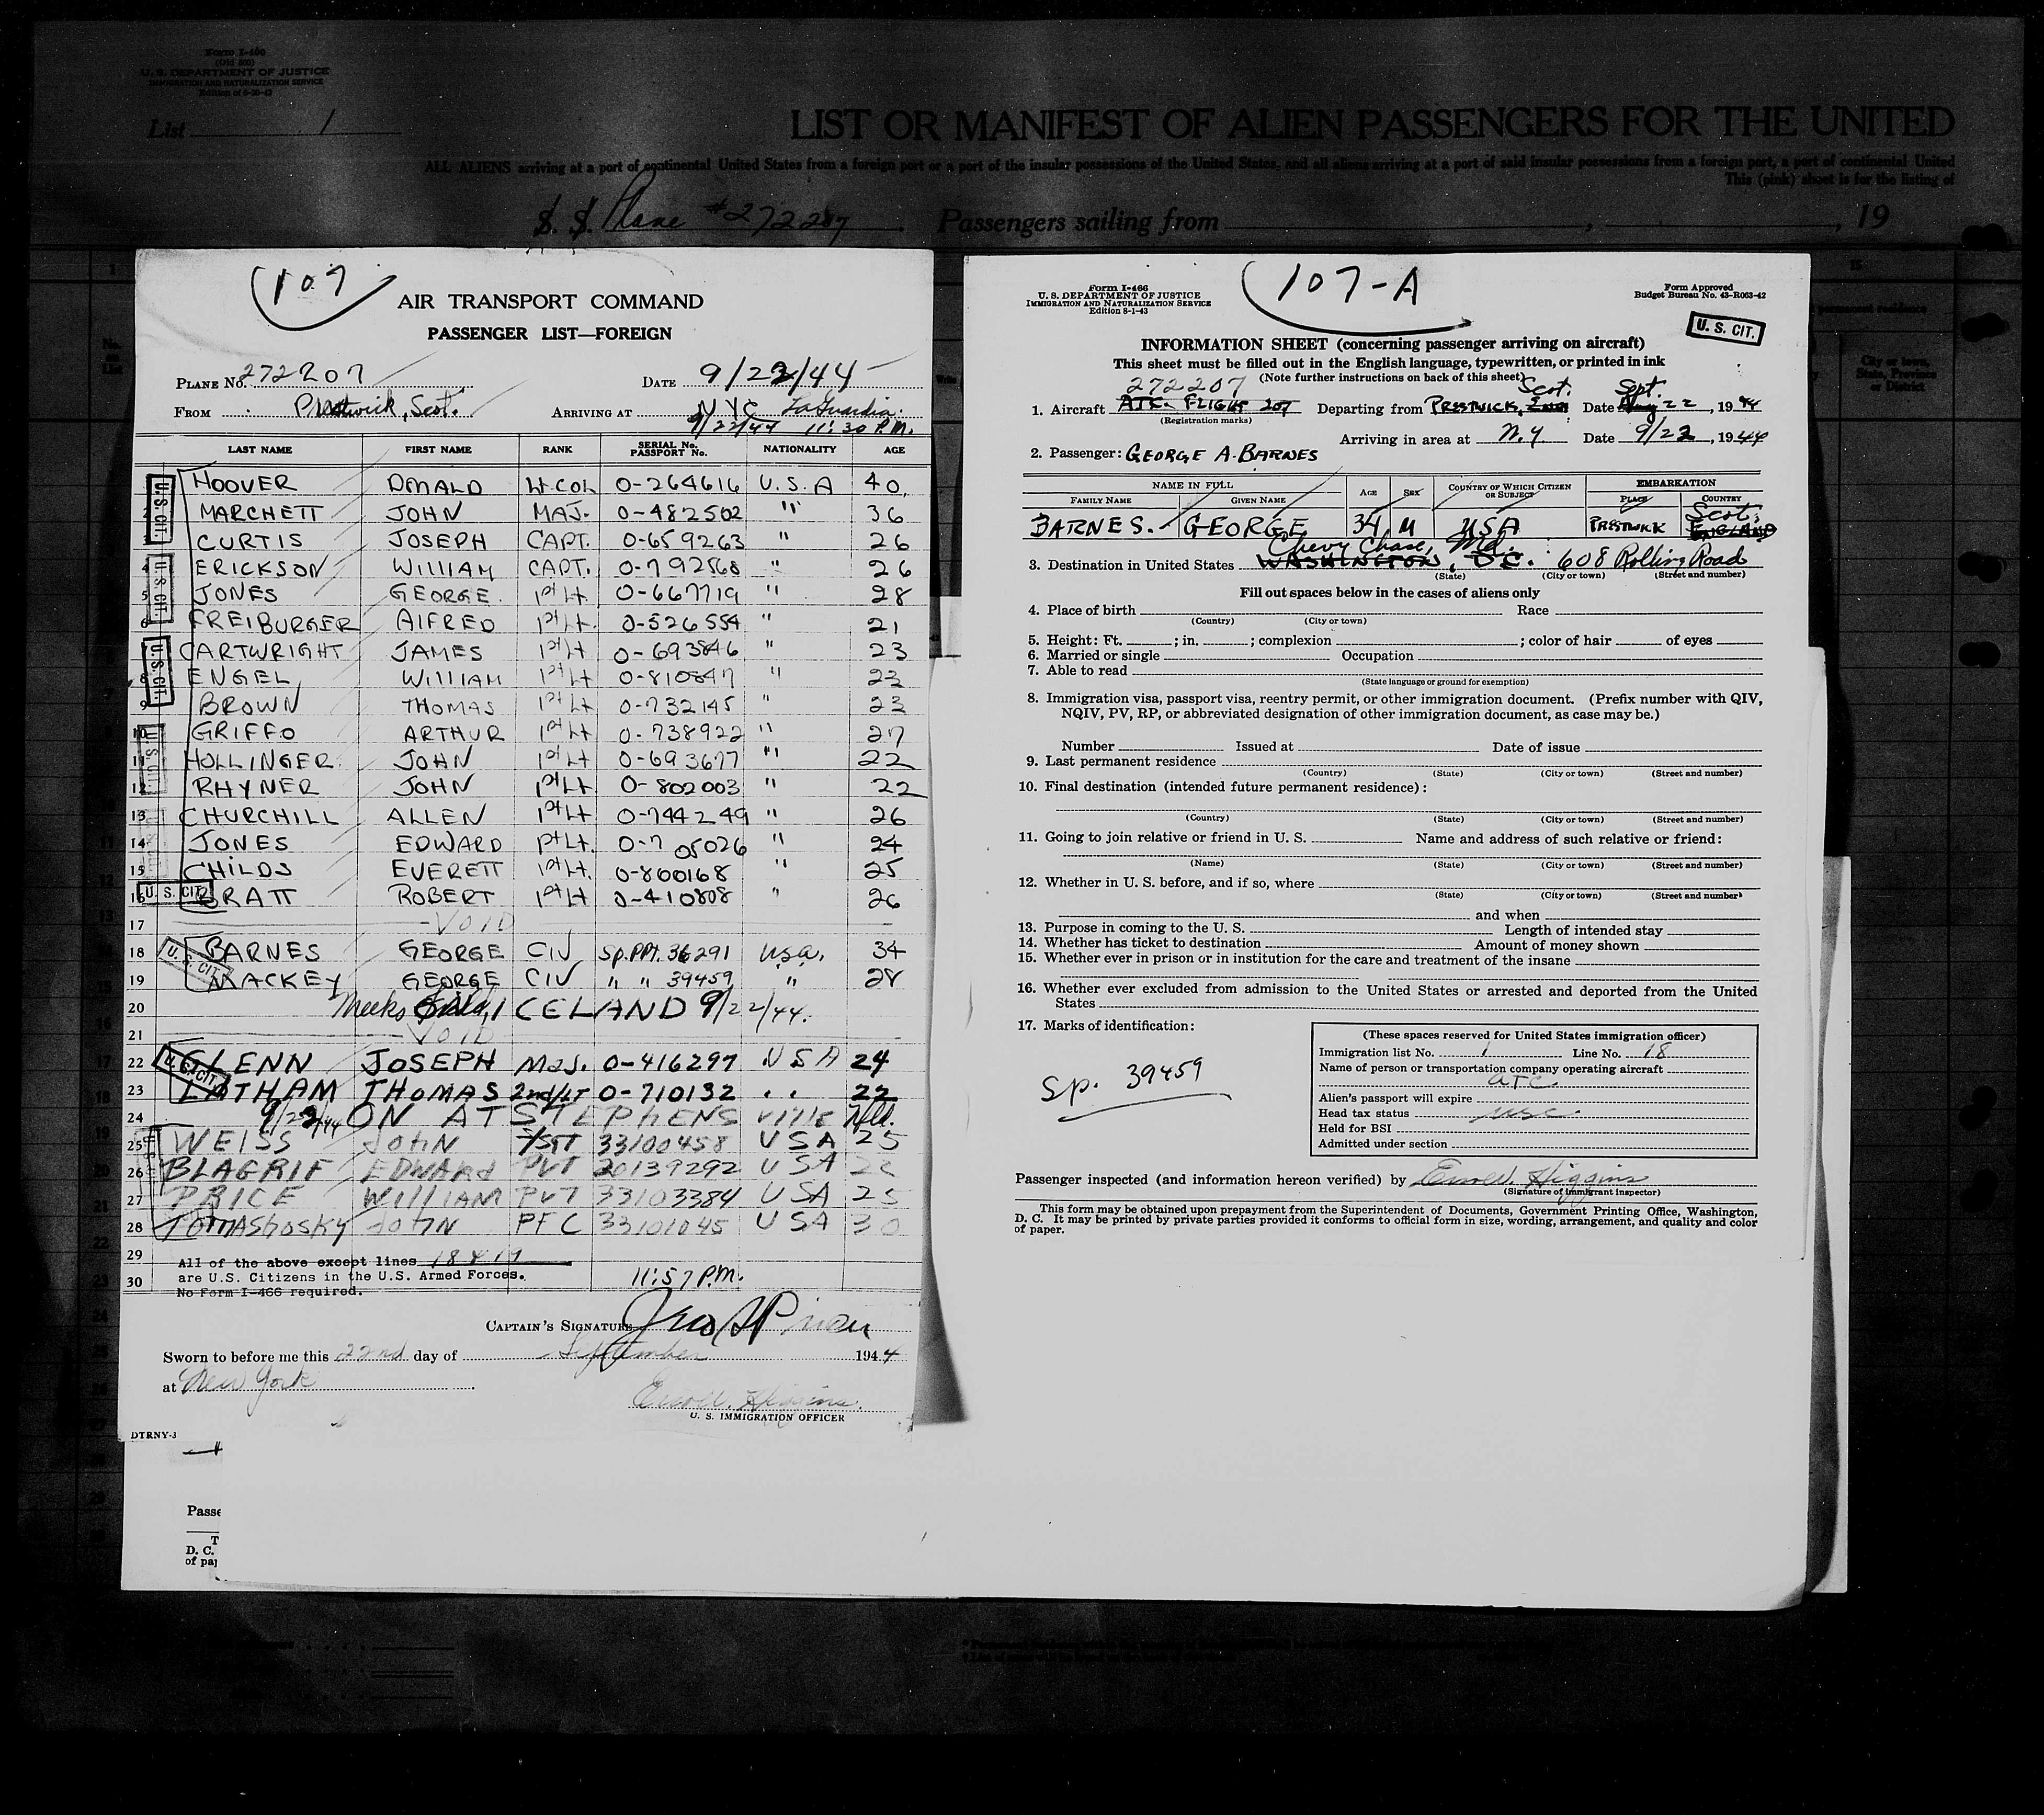 Form I-460
(Old 500)
U. S. DEPARTMENT OF JUSTICE
IMMIGRATION AND NATURALIZATION SERVICE
Edition of 6-20-43
List 1
LIST OR MANIFEST OF ALIEN PASSENGERS FOR THE UNITED
ALL ALIENS arriving at a port of continental United States from a foreign port or a port of the insular possessions of the United States, and all aliens arriving at a port of said insular possessions from a foreign port, a port of continental United
This (pink) sheet is for the listing of
S. S. Plane #272207 Passengers sailing from , , 19
107
AIR TRANSPORT COMMAND
PASSENGER LIST—FOREIGN
PLANE No. 272207 DATE 9/22/44
FROM Prestwick, Scot. ARRIVING AT NYC LaGuardia.
9/22/44 11:30 P.M.
LAST NAME FIRST NAME RANK SERIAL No. PASSPORT No. NATIONALITY AGE
HOOVER DONALD Lt. COL 0-264616 U.S.A 40
2 MARCHETT JOHN MAJ. 0-482502 " 36
3 CURTIS JOSEPH CAPT. 0-659263 " 26
4 ERICKSON WILLIAM CAPT. 0-792568 " 26
5 JONES GEORGE. 1st Lt 0-667719 " 28
6 FREIBURGER ALFRED 1st Lt. 0-526554 " 21
7 CARTWRIGHT JAMES 1st Lt 0-693846 " 23
8 ENGEL WILLIAM 1st Lt 0-810847 " 23
9 BROWN THOMAS 1st Lt 0-732145 " 23
10 GRIFFO ARTHUR 1st Lt 0-738922 " 27
11 HOLLINGER JOHN 1st Lt 0-693677 " 22
12 RHYNER JOHN 1st Lt 0-802003 " 22
13 CHURCHILL ALLEN 1st Lt 0-744249 " 26
14 JONES EDWARD 1st Lt. 0-705026 24
15 CHILDS EVERETT 1st Lt. 0-800168 " 25
16 BRATT ROBERT 1st Lt 0-410808 " 26
17 -VOID
18 BARNES GEORGE CIV Sp.PPt. 36291 U.S.A. 34
19 MACKEY GEORGE CIV " " 39459 " 28
20 Meeks Field, ICELAND 9/22/44.
21 -VOID
22 GLENN JOSEPH MAJ. 0-416297 USA 24
23 LATHAM THOMAS 2nd/LT 0-710132 " 22
24 9/22/44 ON AT STEPHENSVILLE Nfld.
25 WEISS JOHN T/SGT 33100458 USA 25
26 BLAGRIF EDWARD PVT 20139292 USA
27 PRICE WILLIAM PVT 33103384 USA 25
28 TOMASHOSKY JOHN PFC 33101045 USA 30
29 All of the above except lines 18 & 19
are U.S. Citizens in the U.S. Armed Forces.
30 No Form I-466 required.
11:57 P.M.
CAPTAIN'S SIGNATURE
Sworn to before me this 22nd day of September 1944
at New York
Higgins
U. S. IMMIGRATION OFFICER
DTRNY-3
U. S. CIT.
U. S. CIT.
U. S. CIT.
U. S. CIT.
U. S. CIT.
U. S. CIT.
Passe
T
D. C.
of pa
Form I-466
U. S. DEPARTMENT OF JUSTICE
IMMIGRATION AND NATURALIZATION SERVICE
Edition 8-1-43
107-A
Form Approved
Budget Bureau No. 43-R063-42
U. S. CIT.
INFORMATION SHEET (concerning passenger arriving on aircraft)
This sheet must be filled out in the English language, typewritten, or printed in ink
(Note further instructions on back of this sheet)
272207 Scot. Sept.
1. Aircraft ATC. FLIGHT 207 Departing from PRESTWICK, Date 22, 1944
(Registration marks)
Arriving in area at N.Y. Date 9/22, 1944
2. Passenger: GEORGE A. BARNES
NAME IN FULL AGE SEX COUNTRY OF WHICH CITIZEN OR SUBJECT EMBARKATION
FAMILY NAME GIVEN NAME PLACE COUNTRY
BARNES. GEORGE 34 M USA PRESTWICK Scot. ENGLAND
Chevy Chase, Md.
3. Destination in United States WASHINGTON, D.C. 608 Rolling Road
(State) (City or town) (Street and number)
Fill out spaces below in the cases of aliens only
4. Place of birth Race
(Country) (City or town)
5. Height: Ft. ; in. ; complexion ; color of hair of eyes
6. Married or single Occupation
7. Able to read
(State language or ground for exemption)
8. Immigration visa, passport visa, reentry permit, or other immigration document. (Prefix number with QIV,
NQIV, PV, RP, or abbreviated designation of other immigration document, as case may be.)
Number Issued at Date of issue
9. Last permanent residence
(Country) (State) (City or town) (Street and number)
10. Final destination (intended future permanent residence):
(Country) (State) (City or town) (Street and number)
11. Going to join relative or friend in U. S. Name and address of such relative or friend:
(Name) (State) (City or town) (Street and number)
12. Whether in U. S. before, and if so, where
(State) (City or town) (Street and number)
and when
13. Purpose in coming to the U. S. Length of intended stay
14. Whether has ticket to destination Amount of money shown
15. Whether ever in prison or in institution for the care and treatment of the insane
16. Whether ever excluded from admission to the United States or arrested and deported from the United
States
17. Marks of identification:
Sp. 39459
(These spaces reserved for United States immigration officer)
Immigration list No. 1 Line No. 18
Name of person or transportation company operating aircraft
ATC
Alien's passport will expire
Head tax status USC
Held for BSI
Admitted under section
Passenger inspected (and information hereon verified) by Higgins
(Signature of immigrant inspector)
This form may be obtained upon prepayment from the Superintendent of Documents, Government Printing Office, Washington,
D. C. It may be printed by private parties provided it conforms to official form in size, wording, arrangement, and quality and color
of paper.